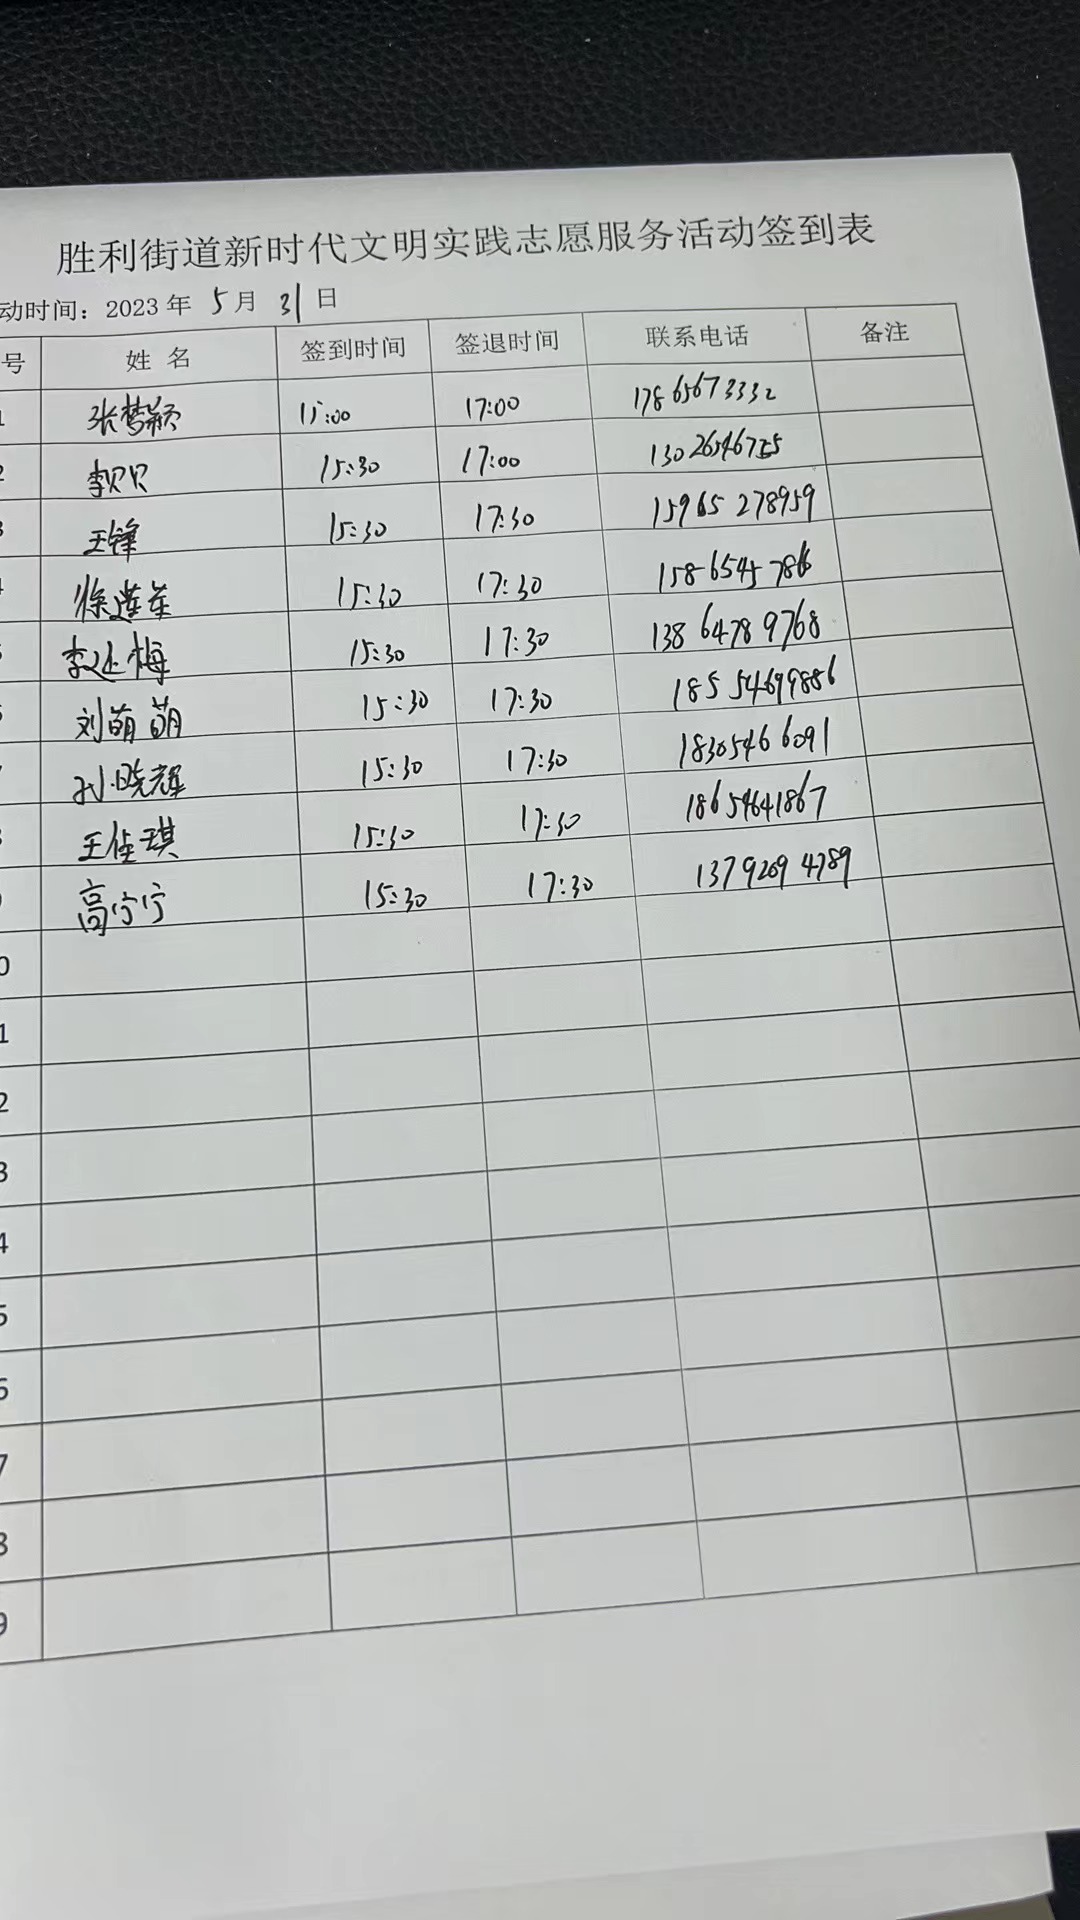 胜利街道新时代文明实践志愿服务活动签到表
动时间：2023 年 5 月 31 日
号 姓 名 签到时间 签退时间 联系电话 备注
1 张梦颖 15:00 17:00 17865673332
2 李贝贝 15:30 17:00 13026546755
3 王锋 15:30 17:30 15965278959
4 徐莲 15:30 17:30 15865457866
5 李 梅 15:30 17:30 13864789768
6 刘萌萌 15:30 17:30 18554699886
7 孙晓辉 15:30 17:30 18305466091
8 王佳琪 15:30 17:30 18654641867
9 高宁宁 15:30 17:30 13792094789
0
1
2
3
4
5
6
7
8
9